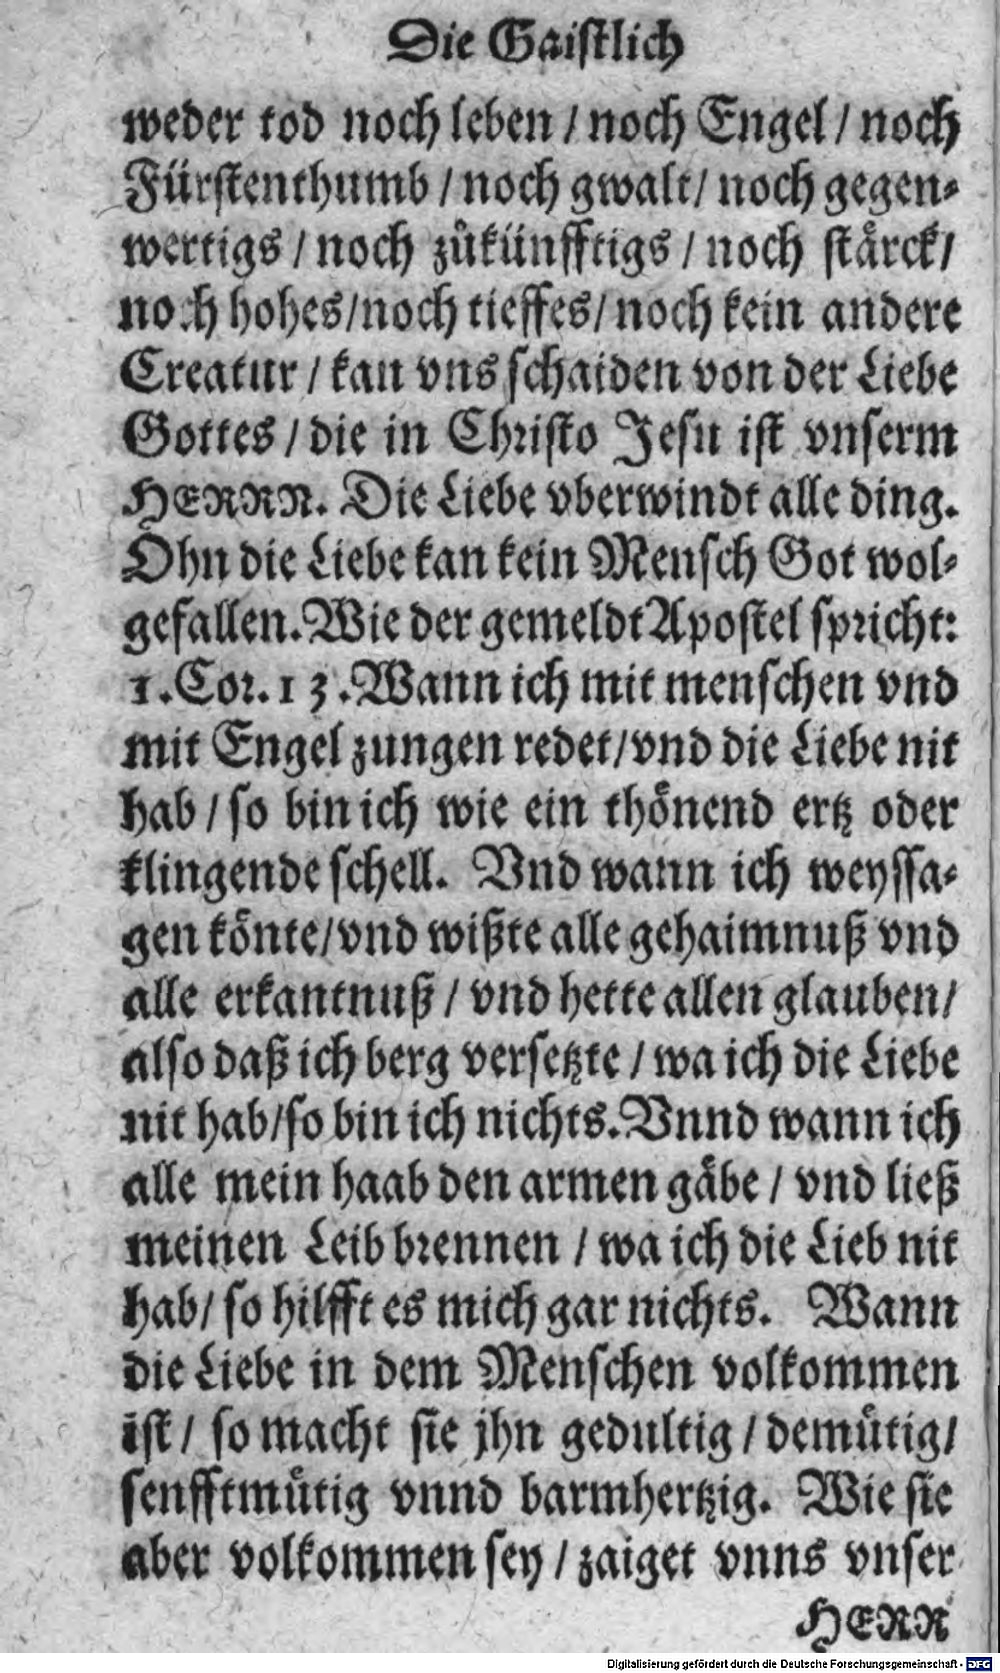 Die Gaistlich
weder tod noch leben / noch Engel / noch
Fürstenthumb / noch gwalt / noch gegen⸗
wertigs / noch zůkünfftigs / noch stårck /
noch hohes / noch tieffes / noch kein andere
Creatur / kan vns schaiden von der Liebe
Gottes / die in Christo Jesu ist vnserm
HERRN. Die Liebe vberwindt alle ding.
Ohn die Liebe kan kein Mensch Got wol⸗
gefallen. Wie der gemeldt Apostel spricht:
1. Cor. 13. Wann ich mit menschen vnd
mit Engel zungen redet / vnd die Liebe nit
hab / so bin ich wie ein thönend ertz oder
klingende schell. Vnd wann ich weyssa⸗
gen könte / vnd wißte alle gehaimnuß vnd
alle erkantnuß / vnd hette allen glauben /
also daß ich berg versetzte / wa ich die Liebe
nit hab / so bin ich nichts. Vnnd wann ich
alle mein haab den armen gäbe / vnd ließ
meinen Leib brennen / wa ich die Lieb nit
hab / so hilfft es mich gar nichts. Wann
die Liebe in dem Menschen volkommen
ist / so macht sie jhn gedultig / demütig /
senfftmütig vnnd barmhertzig. Wie sie
aber volkommen sey / zaiget vnns vnser
HERR
Digitalisierung gefördert durch die Deutsche Forschungsgemeinschaft - DFG